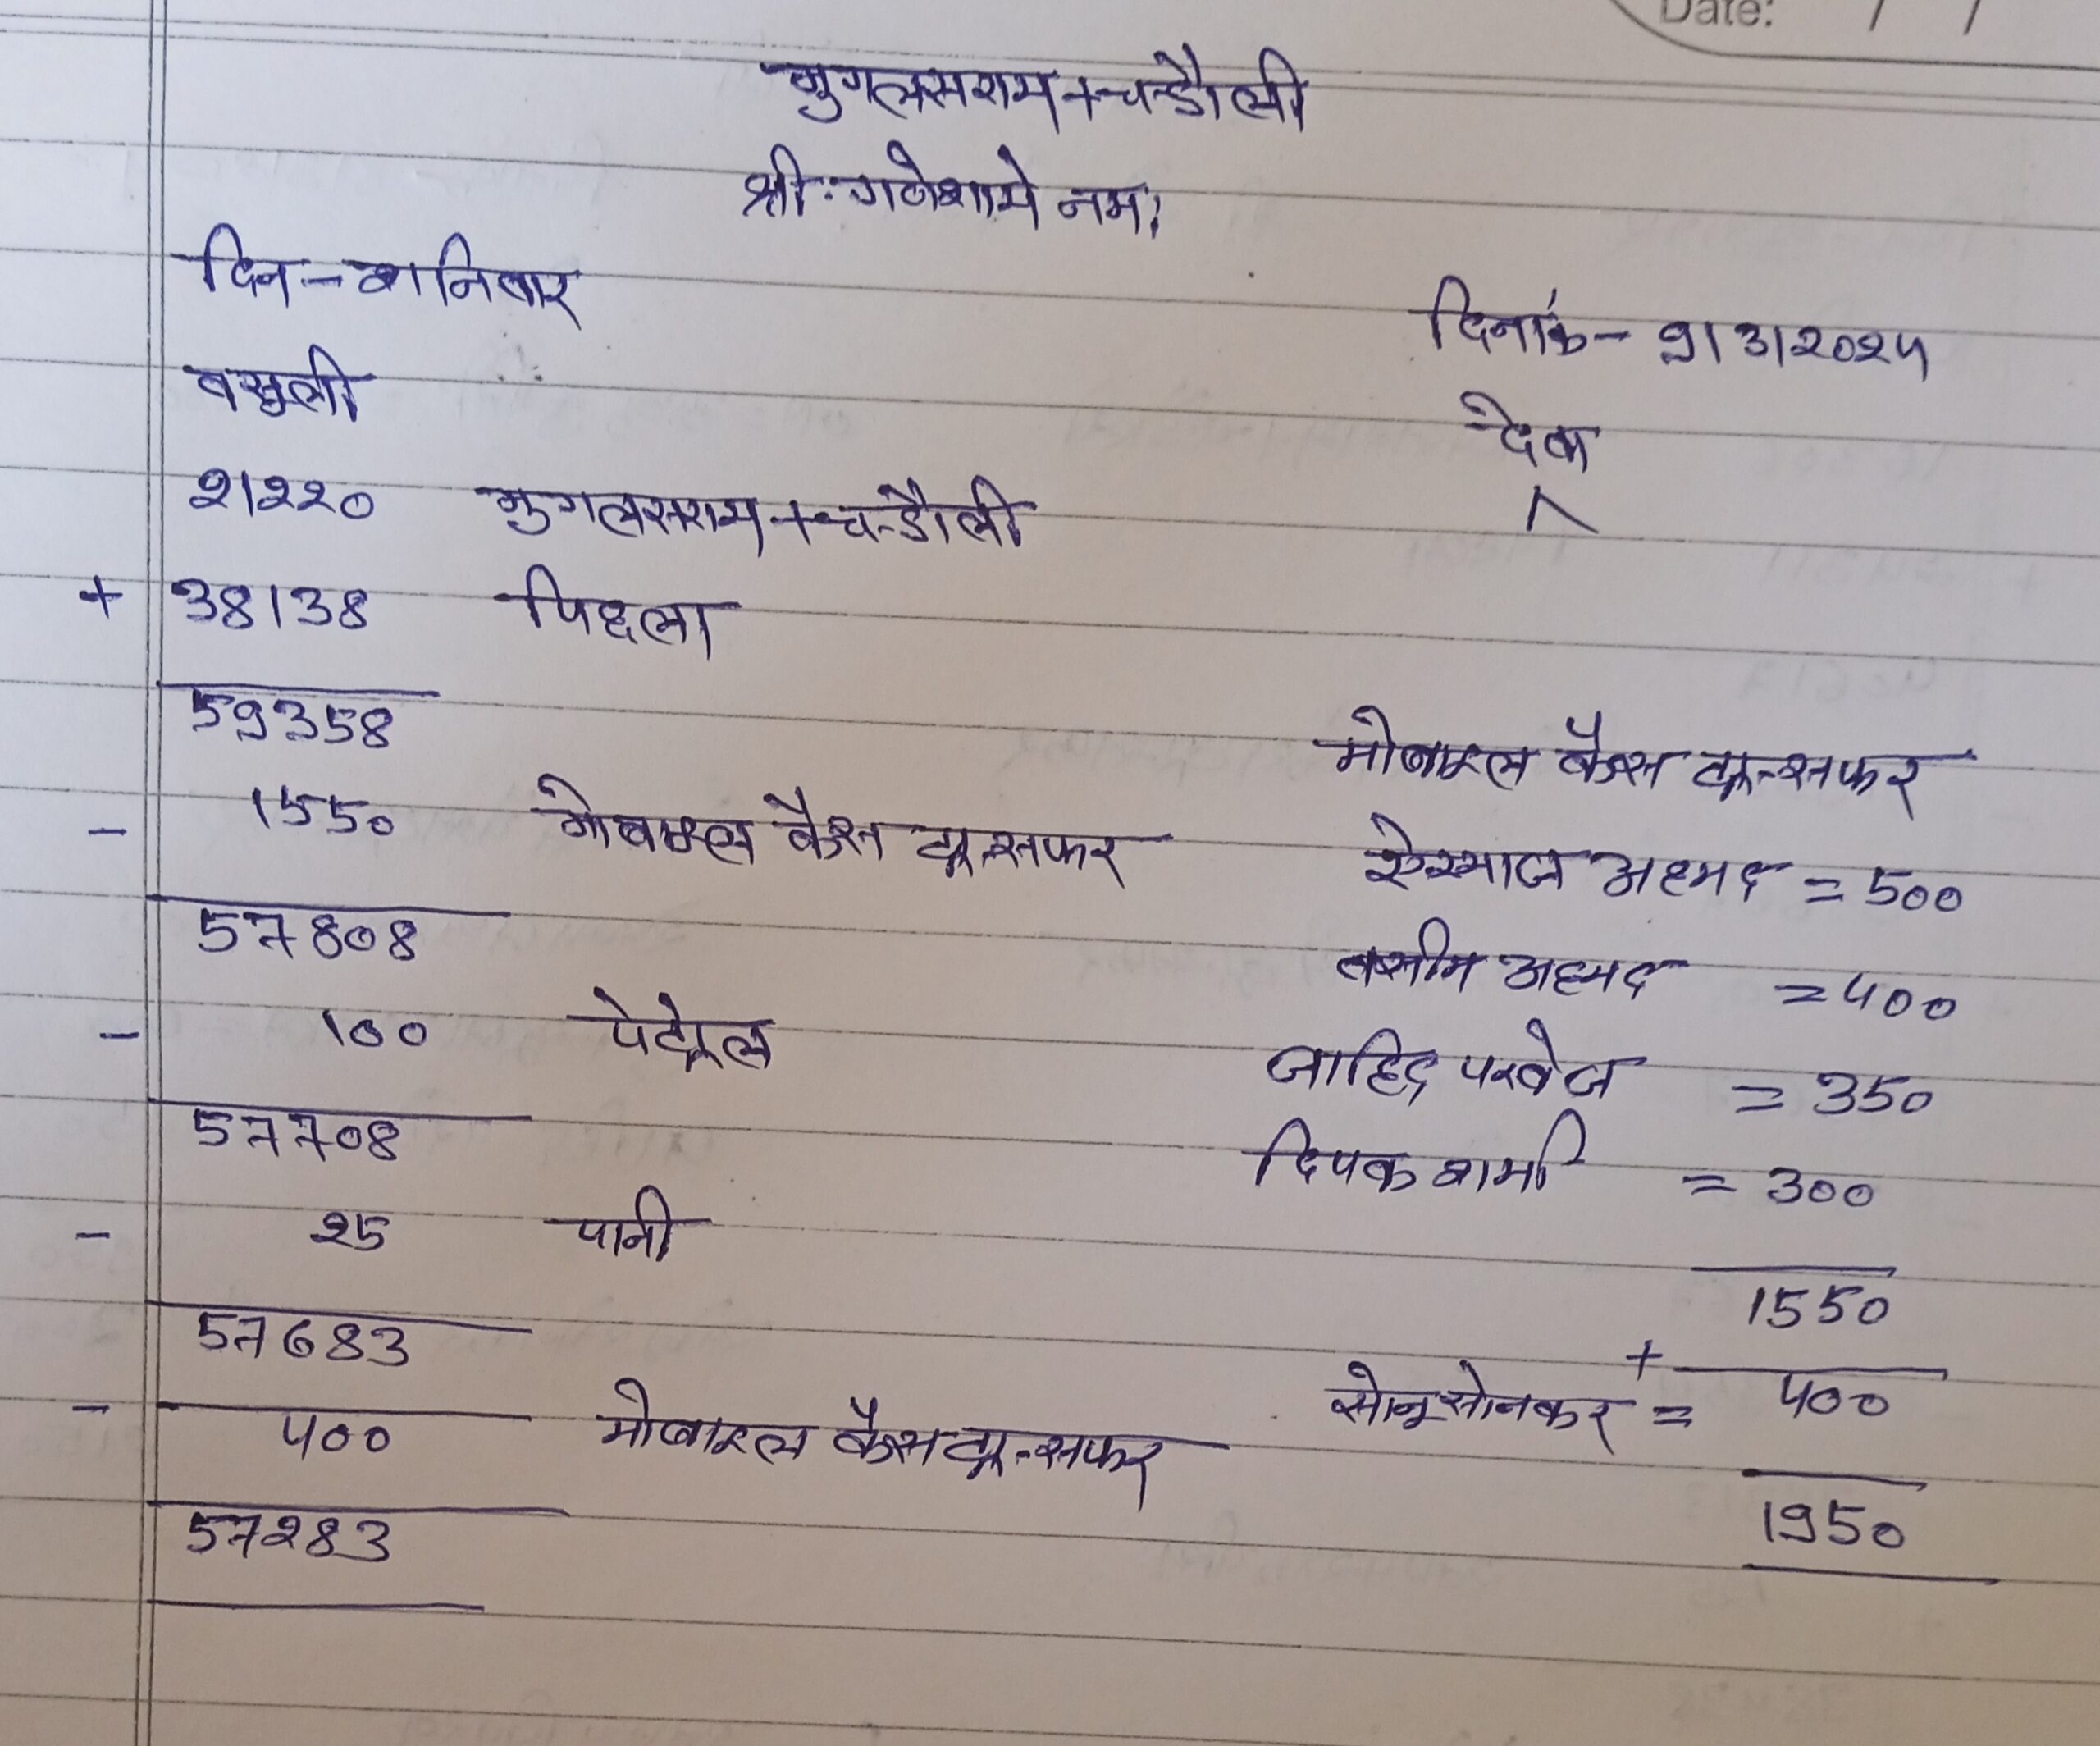 Date: / /
मुगलसराय+चन्डौली
श्री: गणेशाये नम:
दिन - शनिवार
दिनांक - 9/3/2024
वसुली
देवा
21220 मुगलसराय+चन्डौली
+ 38138 पिछला
59358
मोबाइल कैश ट्रान्सफर
- 1550 मोबाइल कैश ट्रान्सफर
अहमद = 500
57808
वसीम अहमद = 400
- 100 पेट्रोल
जाहिद परवेज = 350
57708
दिपक शर्मा = 300
- 25 पानी
1550
57683
+ सोनू सोनकर = 400
- 400 मोबाइल कैश ट्रान्सफर
1950
57283